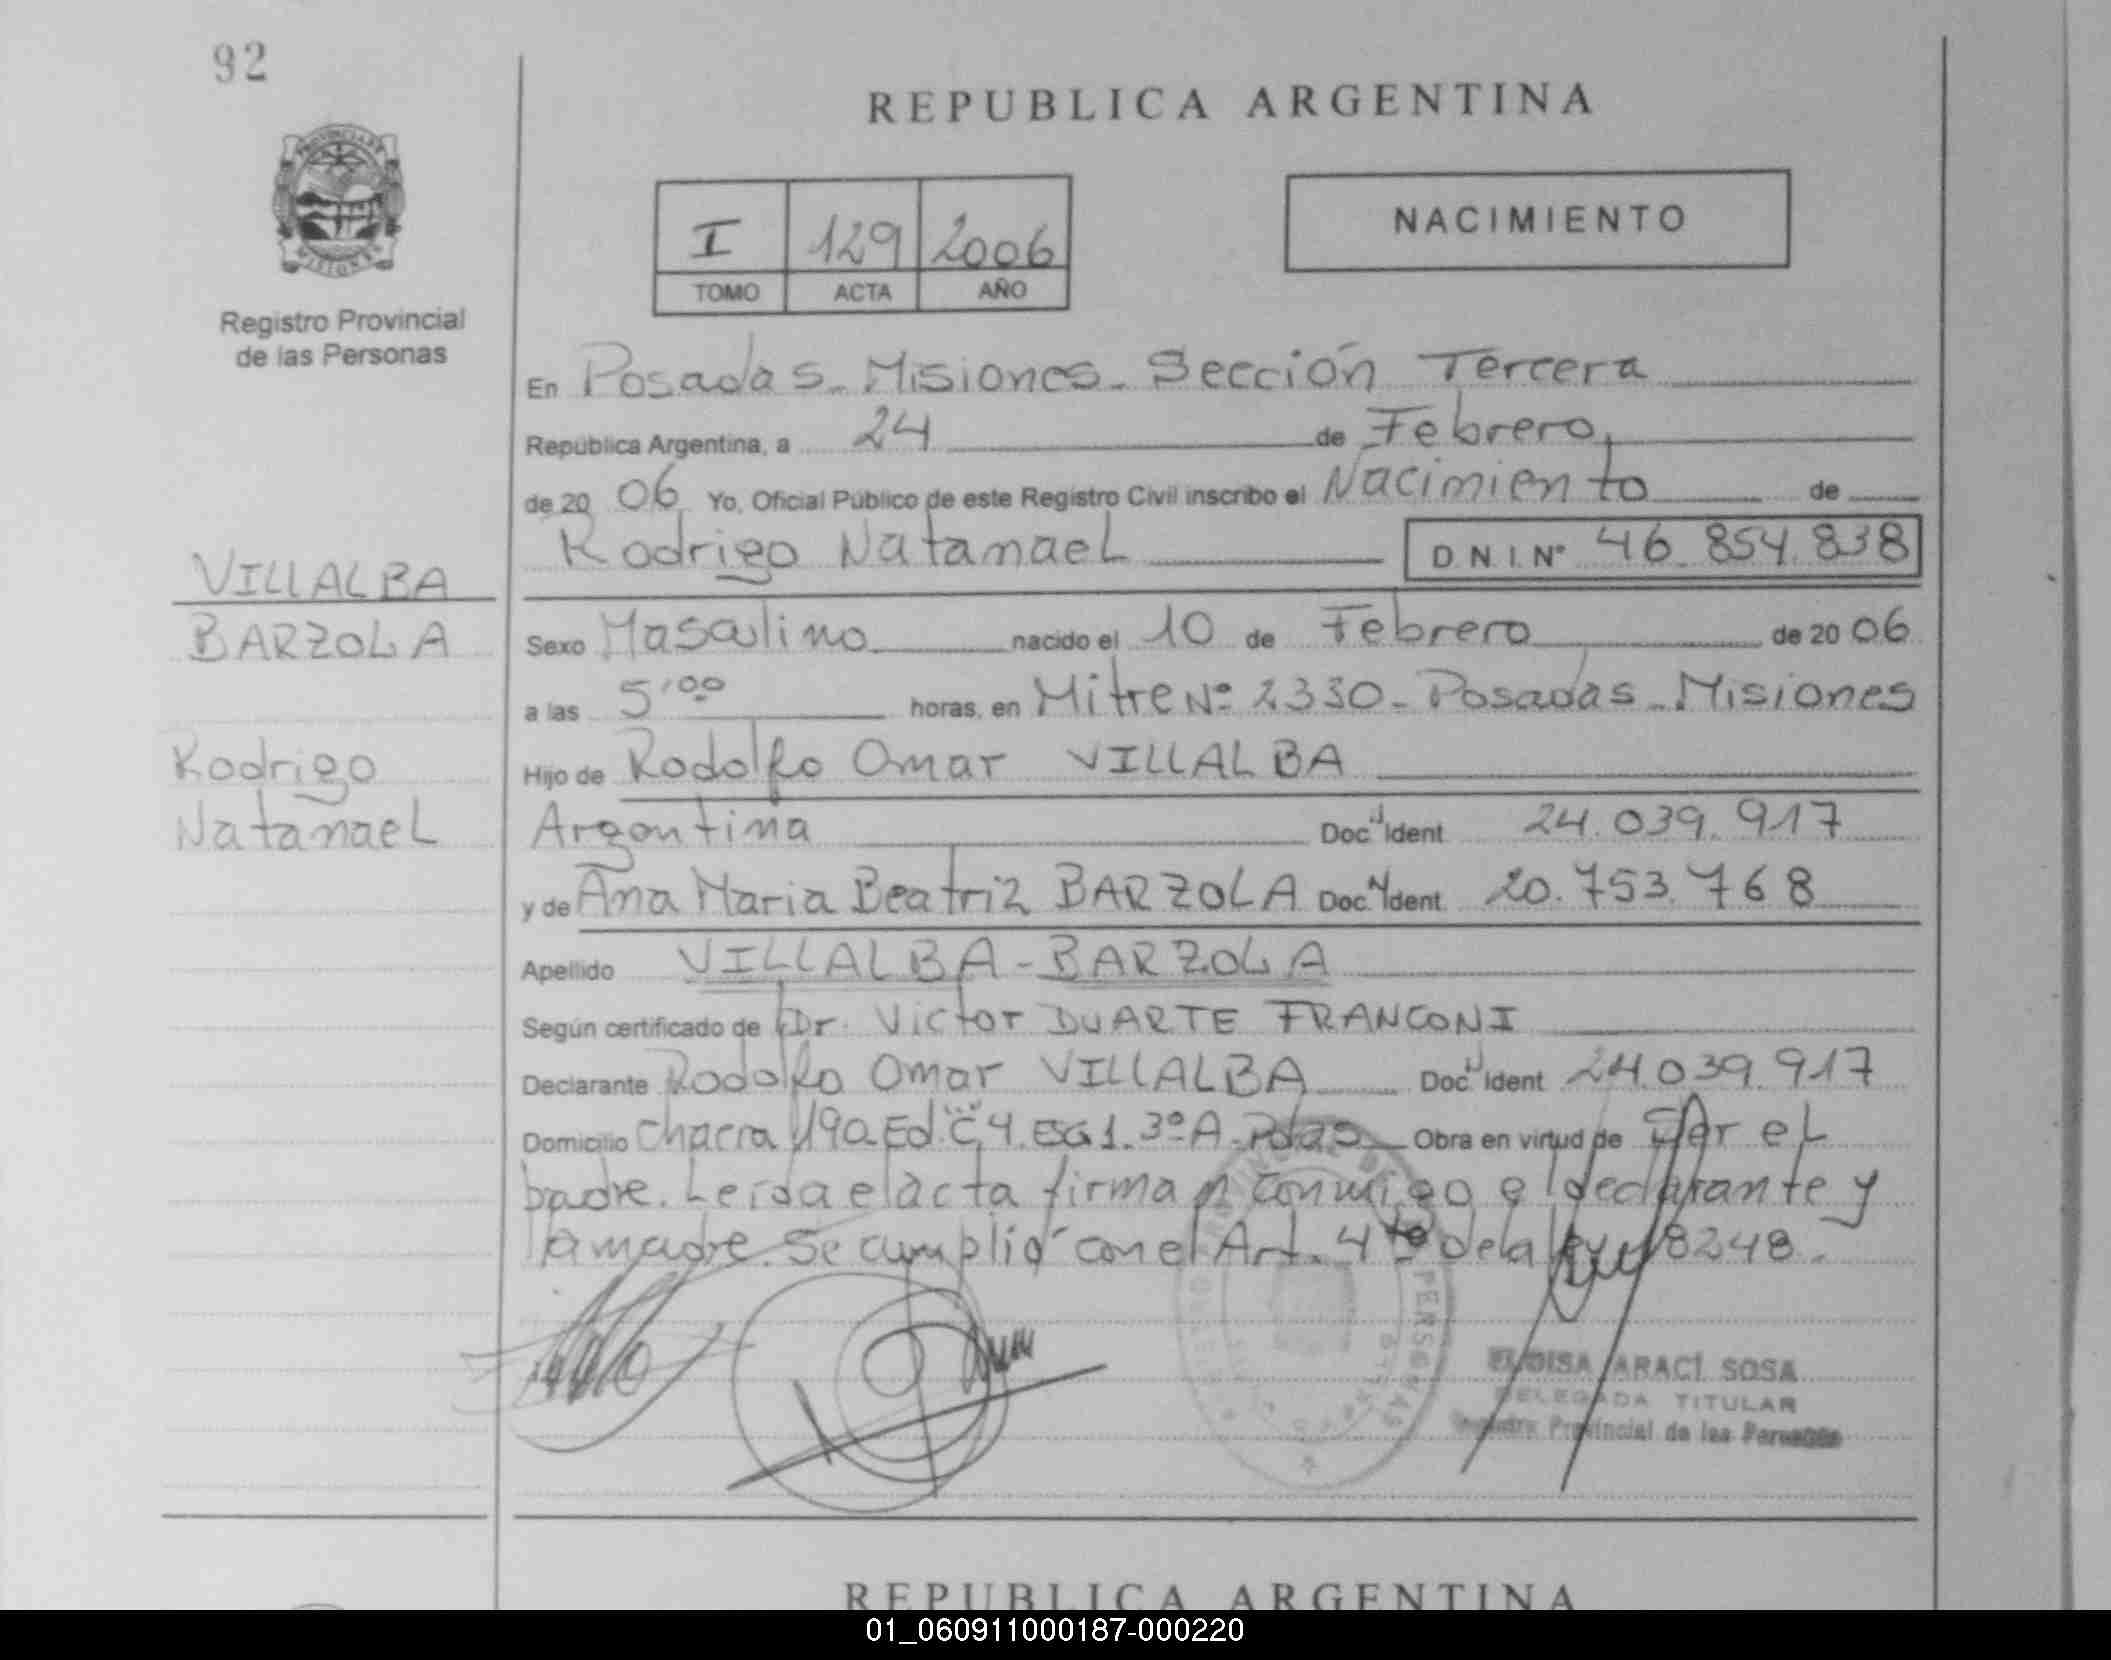 92
REPUBLICA ARGENTINA
PROVINCIA DE
MISIONES
I 129 2006
TOMO ACTA AÑO
NACIMIENTO
Registro Provincial
de las Personas
En Posadas - Misiones - Sección Tercera
República Argentina, a 24 de Febrero,
de 20 06 Yo, Oficial Público de este Registro Civil inscribo el Nacimiento de
Rodrigo Natanael D.N.I. N° 46.854.838
VILLALBA
BARZOLA
Rodrigo
Natanael
Sexo Masculino nacido el 10 de Febrero de 20 06
a las 5,00 horas, en Mitre Nº 2330 - Posadas - Misiones
Hijo de Rodolfo Omar VILLALBA
Argentina Doc. Ident 24.039.917
y de Ana Maria Beatriz BARZOLA Doc. Ident. 20.753.768
Apellido VILLALBA - BARZOLA
Según certificado de Dr. Victor DUARTE FRANCONI
Declarante Rodolfo Omar VILLALBA Doc. Ident 24.039.917
Domicilio chacra 190. Ed. "C" 4. ESG 1. 3º A - Pdas Obra en virtud de Ser el
padre. Leída el acta firman conmigo el declarante y
la madre. Se cumplió con el Art. 4to de la ley 18248.
PERSONAS
ELOISA ARACÍ SOSA
DELEGADA TITULAR
Registro Provincial de las Personas
REPUBLICA ARGENTINA
01_060911000187-000220